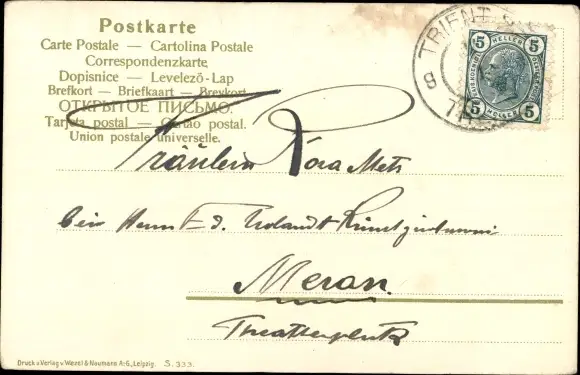 Postkarte
Carte Postale — Cartolina Postale
Correspondenzkarte
Dopisnice — Levelező-Lap
Brefkort — Briefkaart — Brevkort
ОТКРЫТОЕ ПИСЬМО.
Tarjeta postal — Cartão postal.
Union postale universelle.
TRIENT
8
5 HELLER 5
5 HELLER 5
Fräulein Rosa Metz
bei Herrn E. d.
Meran
Theaterplatz
Druck u Verlag v Wezel & Naumann A.-G., Leipzig. S. 333.